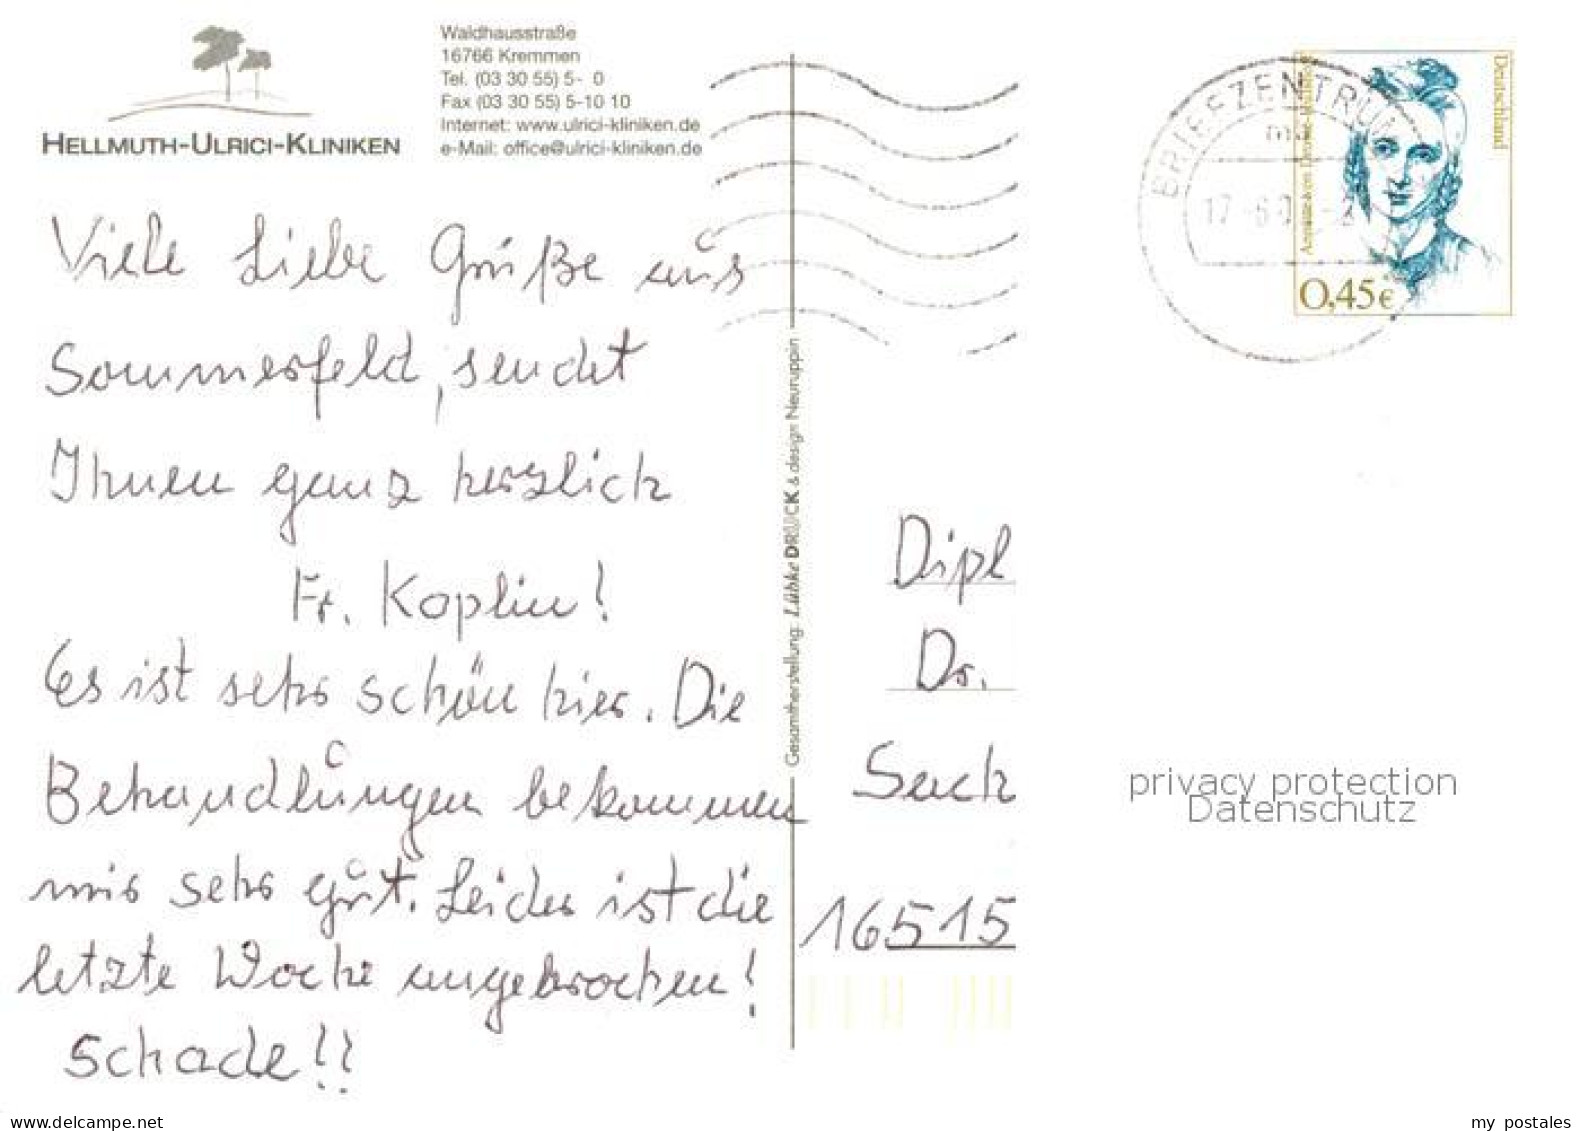 Waldhausstraße
16766 Kremmen
Tel. (03 30 55) 5- 0
Fax (03 30 55) 5-10 10
Internet: www.ulrici-kliniken.de
e-Mail: office@ulrici-kliniken.de
HELLMUTH-ULRICI-KLINIKEN
Viele Liebe Grüße aus
Sommerfeld, sendet
Ihnen ganz herzlich
Fr. Koplin!
Es ist sehr schön hier. Die
Behandlungen bekommen
mir sehr gut. Leider ist die
letzte Woche angebrochen!
Schade!!
Gesamtherstellung: Lübke DRUCK & design Neuruppin
BRIEFZENTRUM
17.-6.0
Deutschland
Annette von Droste-Hülshoff
0,45€
Dipl
Dr.
16515
privacy protection
Datenschutz
www.delcampe.net
my postales